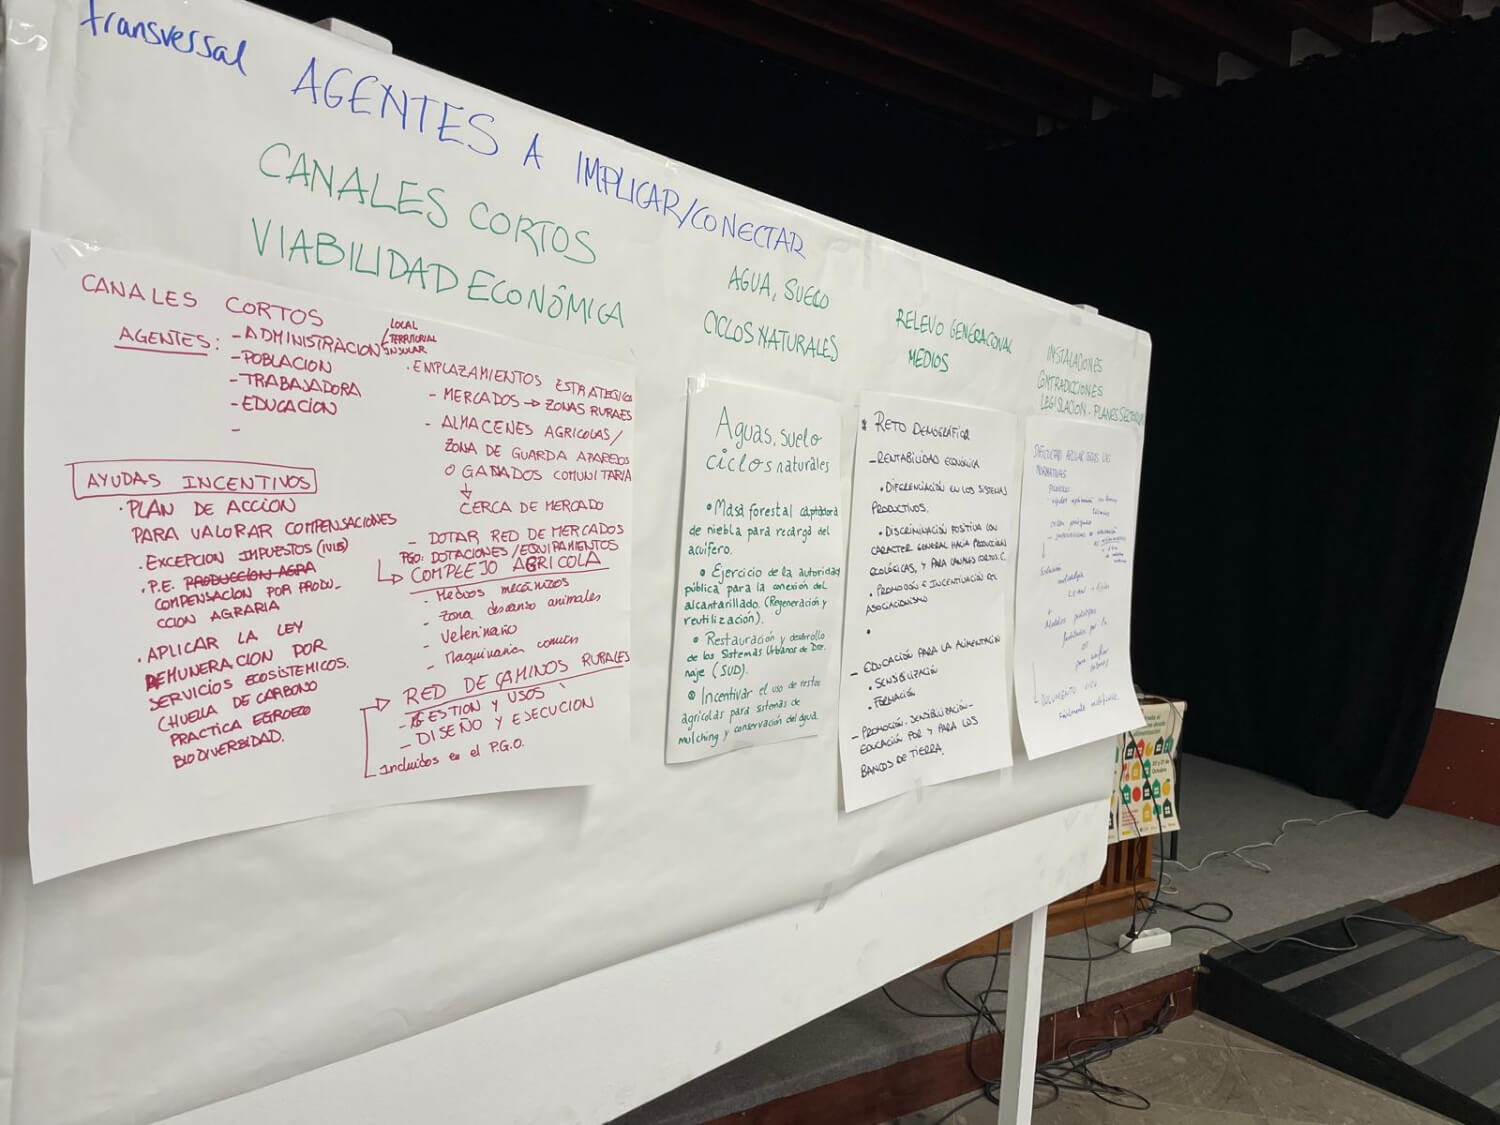 transversal AGENTES A IMPLICAR/CONECTAR
CANALES CORTOS
VIABILIDAD ECONÓMICA
CANALES CORTOS
AGENTES: - ADMINISTRACION
LOCAL
TERRITORIAL
INSULAR
- POBLACION
- TRABAJADORA
- EDUCACION
-
AYUDAS INCENTIVOS
· PLAN DE ACCION
PARA VALORAR COMPENSACIONES
· EXCEPCION IMPUESTOS
· P.E. PRODUCCION AGRA
COMPENSACION POR PRODU-
CCION AGRARIA
· APLICAR LA LEY
REMUNERACION POR
SERVICIOS ECOSISTEMICOS.
CHUELLA DE CARBONO
PRACTICA
BIODIVERSIDAD.
· EMPLAZAMIENTOS ESTRATEGICOS
- MERCADOS → ZONAS RURALES
- ALMACENES AGRICOLAS/
ZONA DE GUARDA APAREJOS
O GANADOS COMUNITARIA
↓
CERCA DE MERCADO
- DOTAR RED DE MERCADOS
PGO: DOTACIONES/EQUIPAMIENTOS
→ COMPLEJO AGRICOLA
- Medios mecánizos
- Zona descanso animales
- Veterinario
- Maquinaria comun
→ RED DE CAMINOS RURALES
- GESTION Y USOS
- DISEÑO Y EJECUCION
Incluidos en el P.G.O.
AGUA, SUELO
CICLOS NATURALES
Aguas, suelo
ciclos naturales
• Masa forestal captadora
de niebla para recarga del
acuífero.
• Ejercicio de la autoridad
pública para la conexión del
alcantarillado. (Regeneración y
reutilización).
• Restauración y desarrollo
de los Sistemas Urbanos de Dre-
naje (SUD).
• Incentivar el uso de restos
agrícolas para sistemas de
mulching y conservación del agua.
RELEVO GENERACIONAL
MEDIOS
RETO DEMOGRÁFICO
- RENTABILIDAD ECONÓMICA
• DIFERENCIACIÓN EN LOS SISTEMAS
PRODUCTIVOS.
• DISCRIMINACIÓN POSITIVA CON
CARACTER GENERAL HACIA PRODUCCION
ECOLÓGICAS, Y PARA CANALES CORTOS C.
• PROMOCIÓN E INCENTIVACIÓN DEL
ASOCIACIONISMO
•
- EDUCACIÓN PARA LA ALIMENTACIÓN
• SENSIBILIZACIÓN
• FORMACIÓN
- PROMOCIÓN, SENSIBILIZACIÓN-
EDUCACIÓN POR Y PARA LOS
BANCOS DE TIERRA.
INSTALACIONES
CONTRADICCIONES
LEGISLACIÓN - PLANES
NORMATIVAS
DOCUMENTO
20 y 21 de
Octubre